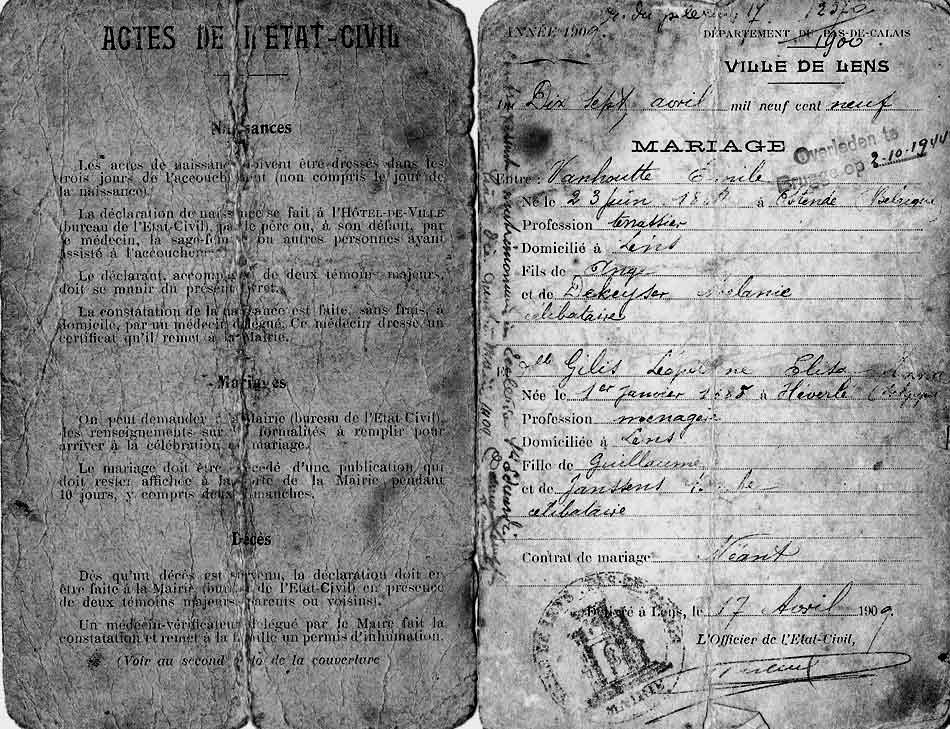 ACTES DE L'ETAT-CIVIL
Naissances
Les actes de naissance doivent être dressés dans les
trois jours de l'accouchement (non compris le jour de
la naissance).
La déclaration de naissance se fait à l'HÔTEL-DE-VILLE
(bureau de l'Etat-Civil), par le père ou, à son défaut, par
le médecin, la sage-femme ou autres personnes ayant
assisté à l'accouchement.
Le déclarant, accompagné de deux témoins majeurs,
doit se munir du présent livret.
La constatation de la naissance est faite, sans frais, à
domicile, par un médecin délégué. Ce médecin dresse un
certificat qu'il remet à la Mairie.
Mariages
On peut demander à la Mairie (bureau de l'Etat-Civil)
les renseignements sur les formalités à remplir pour
arriver à la célébration du mariage.
Le mariage doit être précédé d'une publication qui
doit rester affichée à la porte de la Mairie pendant
10 jours, y compris deux dimanches.
Décès
Dès qu'un décès est survenu, la déclaration doit en
être faite à la Mairie (bureau de l'Etat-Civil) en présence
de deux témoins majeurs (parents ou voisins).
Un médecin-vérificateur délégué par le Maire fait la
constatation et remet à la famille un permis d'inhumation.
(Voir au second de la couverture)
17
ANNÉE 1909
DÉPARTEMENT DU PAS-DE-CALAIS
1900
VILLE DE LENS
Dix sept avril mil neuf cent neuf
MARIAGE
Overleden te
Brugge op 2-10-1940
Entre : Vanhoutte Emile
Né le 23 juin à Ostende Belgique
Profession terrassier
Domicilié à Lens
Fils de Ange
et de Dekeyser Mélanie
célibataire
Et dlle Gilis Léopoldine Elisa Anna
Née le 1er janvier 1888 à Héverlé (Belgique)
Profession ménagère
Domiciliée à Lens
Fille de Guillaume
et de Janssens
célibataire
Contrat de mariage Néant
Délivré à Lens, le 17 Avril 1909
L'Officier de l'Etat-Civil,
MAIRIE